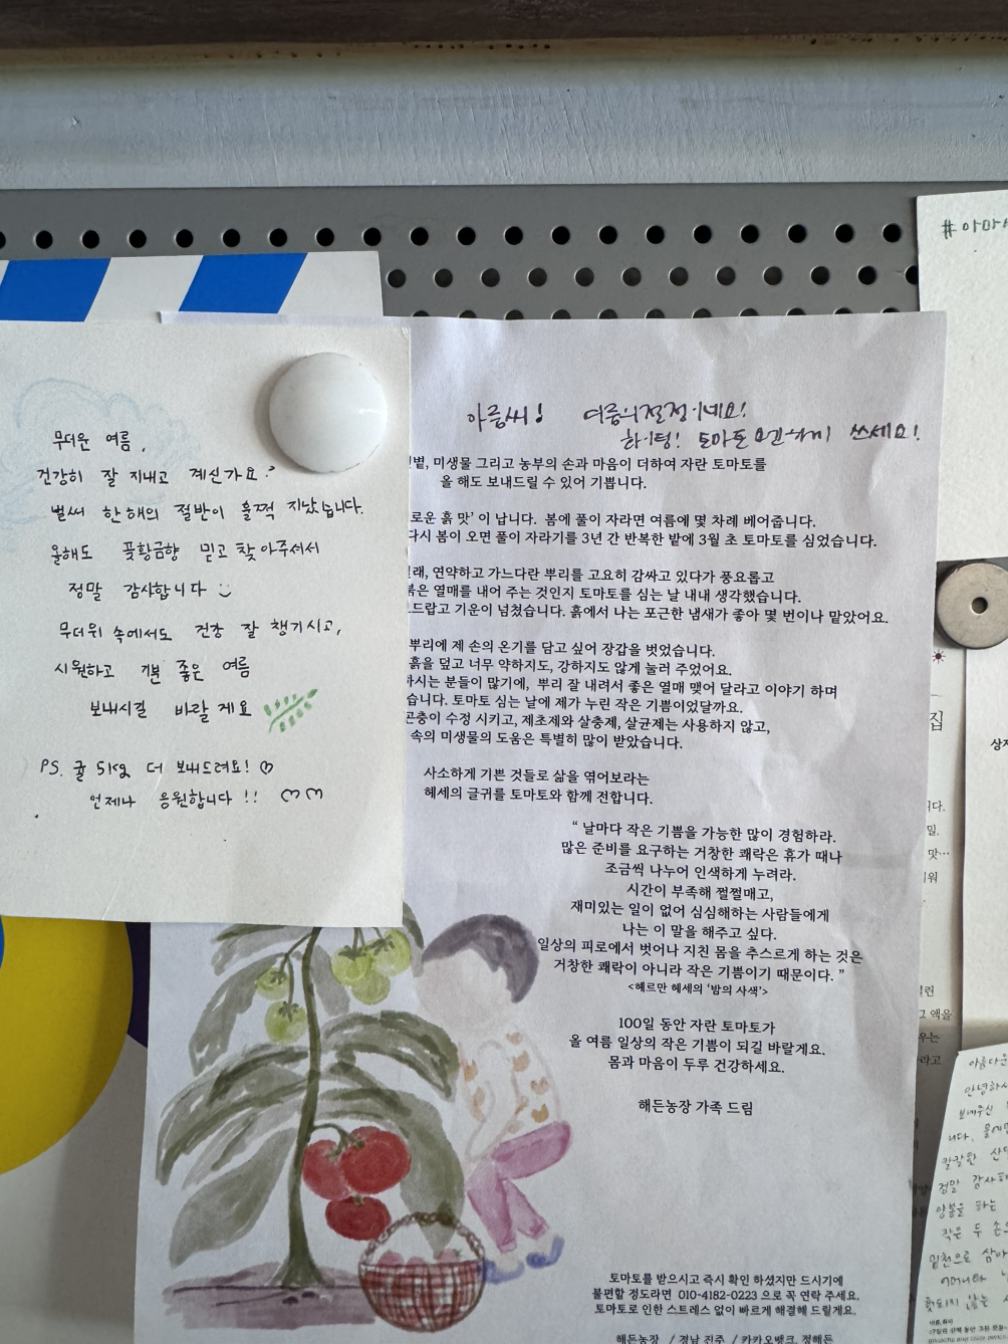 무더운 여름,
건강히 잘 지내고 계신가요?
벌써 한 해의 절반이 훌쩍 지났습니다.
올해도 꽃황금향 믿고 찾아주셔서
정말 감사합니다
무더위 속에서도 건강 잘 챙기시고,
시원하고 기분 좋은 여름
보내시길 바랄게요
PS. 귤 5kg 더 보내드려요!
언제나 응원합니다!!
아름씨! 여름의 절정이네요!
화이팅! 토마토 쓰세요!
미생물 그리고 농부의 손과 마음이 더하여 자란 토마토를
올 해도 보내드릴 수 있어 기쁩니다.
흙 맛’ 이 납니다. 봄에 풀이 자라면 여름에 몇 차례 베어줍니다.
다시 봄이 오면 풀이 자라기를 3년 간 반복한 밭에 3월 초 토마토를 심었습니다.
연약하고 가느다란 뿌리를 고요히 감싸고 있다가 풍요롭고
열매를 내어 주는 것인지 토마토를 심는 날 내내 생각했습니다.
기운이 넘쳤습니다. 흙에서 나는 포근한 냄새가 좋아 몇 번이나 맡았어요.
뿌리에 제 손의 온기를 담고 싶어 장갑을 벗었습니다.
흙을 덮고 너무 약하지도, 강하지도 않게 눌러 주었어요.
하시는 분들이 많기에, 뿌리 잘 내려서 좋은 열매 맺어 달라고 이야기 하며
토마토 심는 날에 제가 누린 작은 기쁨이었달까요.
곤충이 수정 시키고, 제초제와 살충제, 살균제는 사용하지 않고,
속의 미생물의 도움은 특별히 많이 받았습니다.
사소하게 기쁜 것들로 삶을 엮어보라는
헤세의 글귀를 토마토와 함께 전합니다.
“ 날마다 작은 기쁨을 가능한 많이 경험하라.
많은 준비를 요구하는 거창한 쾌락은 휴가 때나
조금씩 나누어 인색하게 누려라.
시간이 부족해 쩔쩔매고,
재미있는 일이 없어 심심해하는 사람들에게
나는 이 말을 해주고 싶다.
일상의 피로에서 벗어나 지친 몸을 추스르게 하는 것은
거창한 쾌락이 아니라 작은 기쁨이기 때문이다. ”
<헤르만 헤세의 ‘밤의 사색’>
100일 동안 자란 토마토가
올 여름 일상의 작은 기쁨이 되길 바랄게요.
몸과 마음이 두루 건강하세요.
해든농장 가족 드림
토마토를 받으시고 즉시 확인 하셨지만 드시기에
불편할 정도라면 010-4182-0223 으로 꼭 연락 주세요.
토마토로 인한 스트레스 없이 빠르게 해결해 드릴게요.
해든농장 / 경남 진주 / 카카오뱅크. 정해든